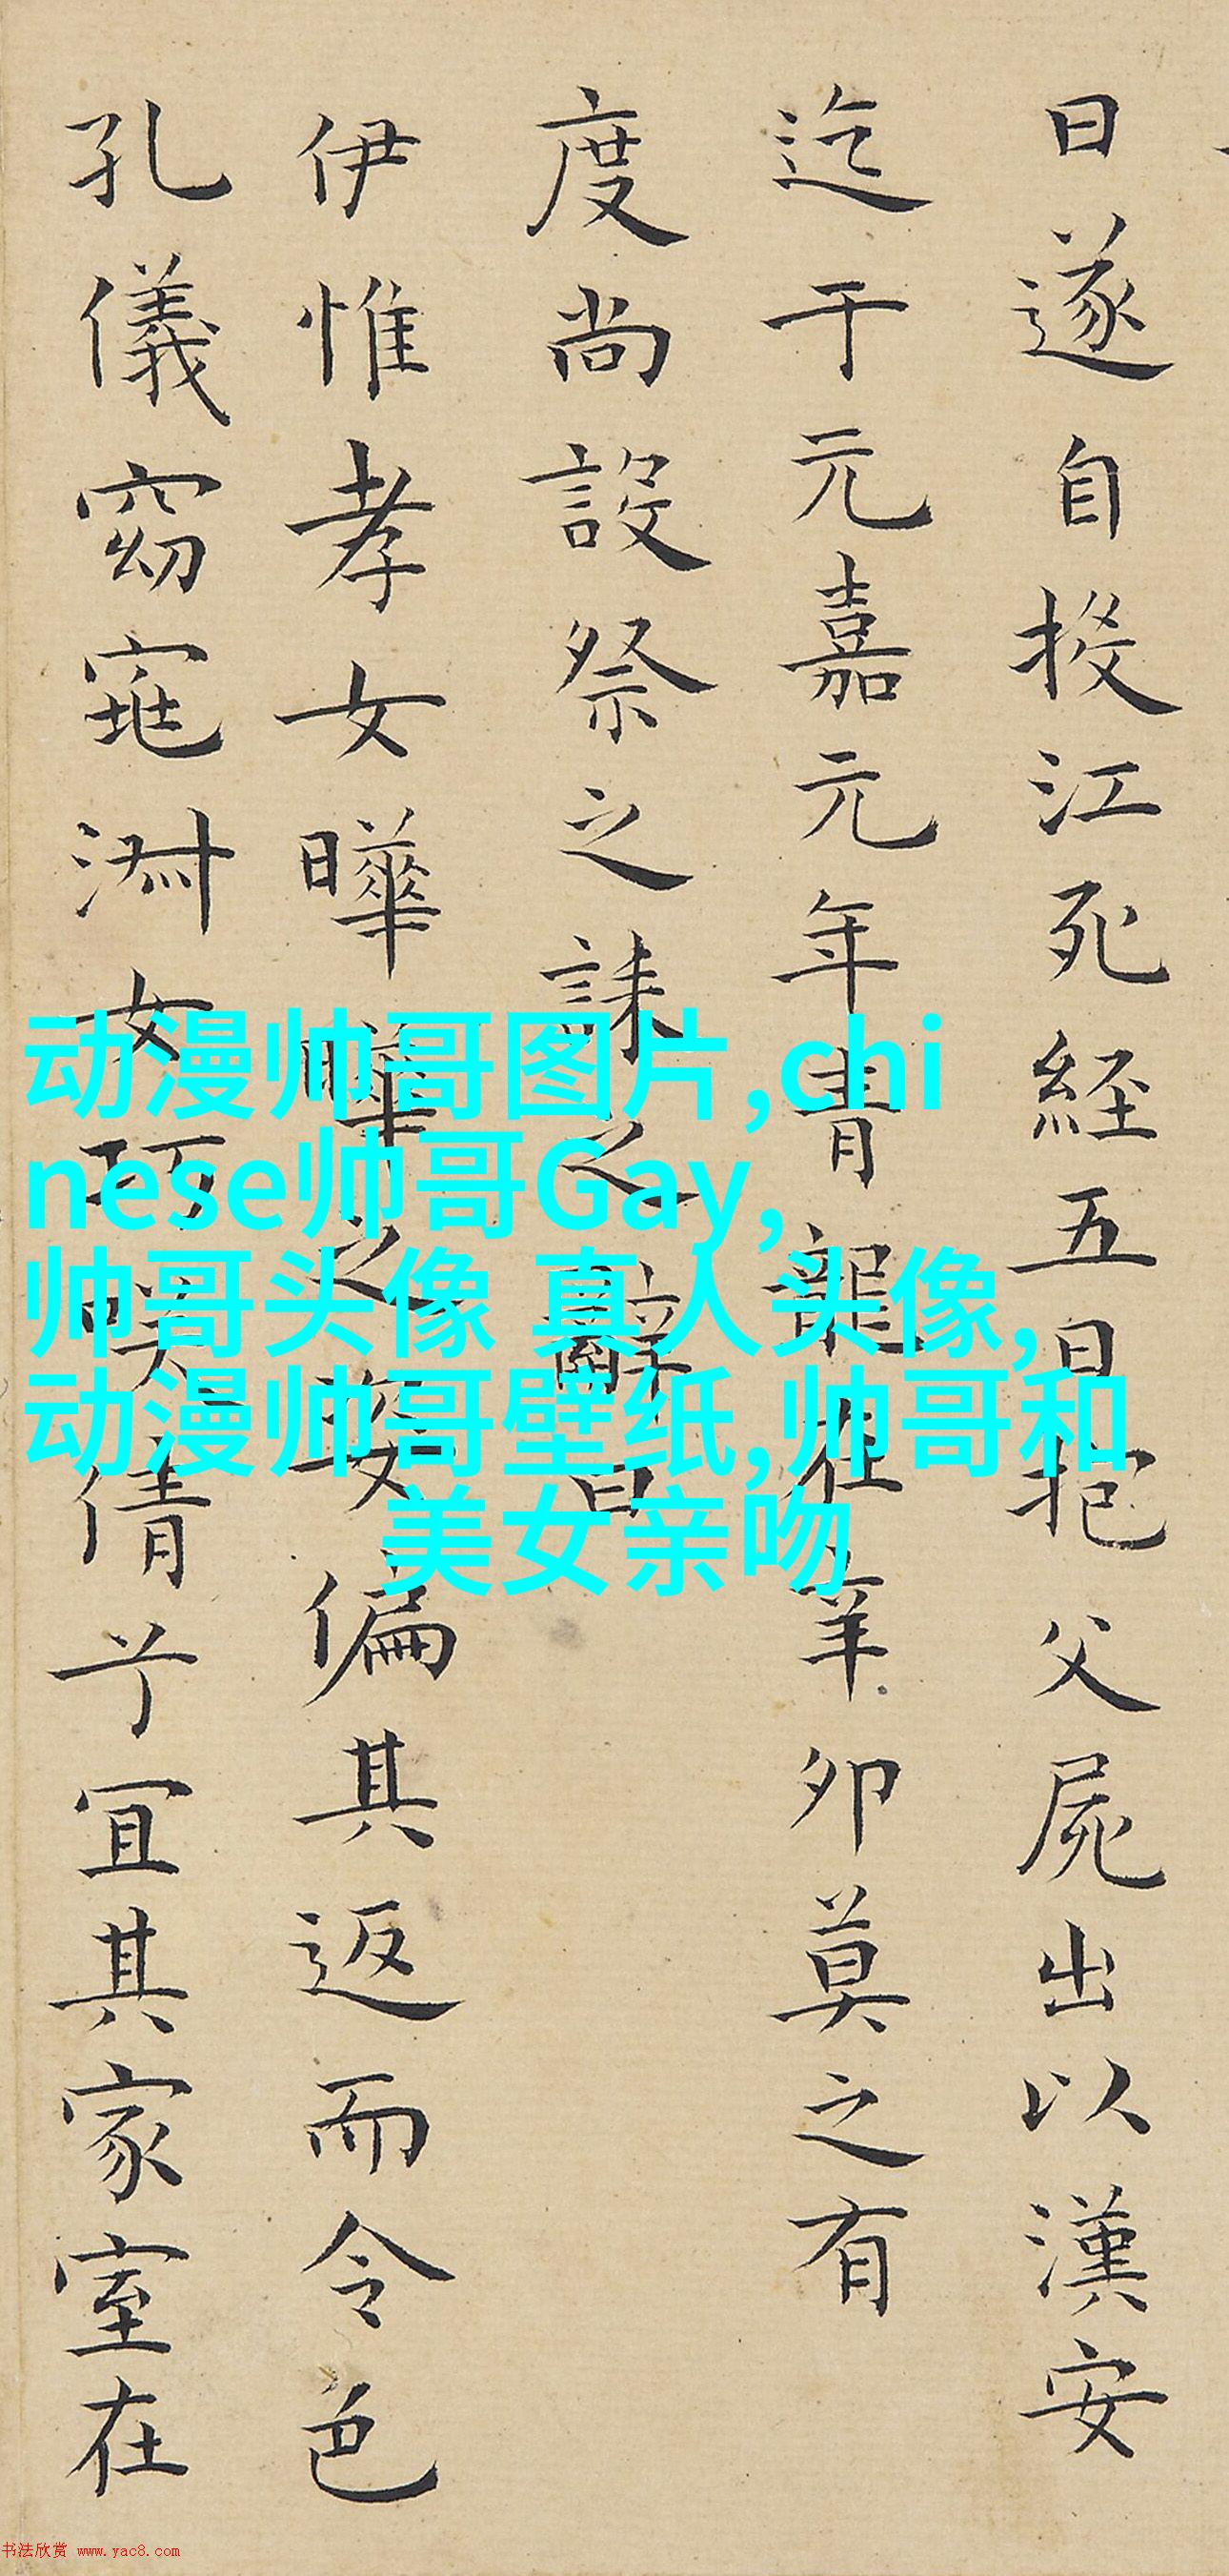 日遂自投江死経五日抱父屍出以漢安
迄于元嘉元年青龍在辛卯莫之有
度尚設祭之誄之辭曰
伊惟孝女曄曄之姿偏其返而令色
孔儀窈窕淑女巧咲倩兮宜其家室在
动漫帅哥图片,chi
nese帅哥Gay,
帅哥头像 真人头像,
动漫帅哥壁纸,帅哥和
美女亲吻
书法欣赏 www.yac8.com